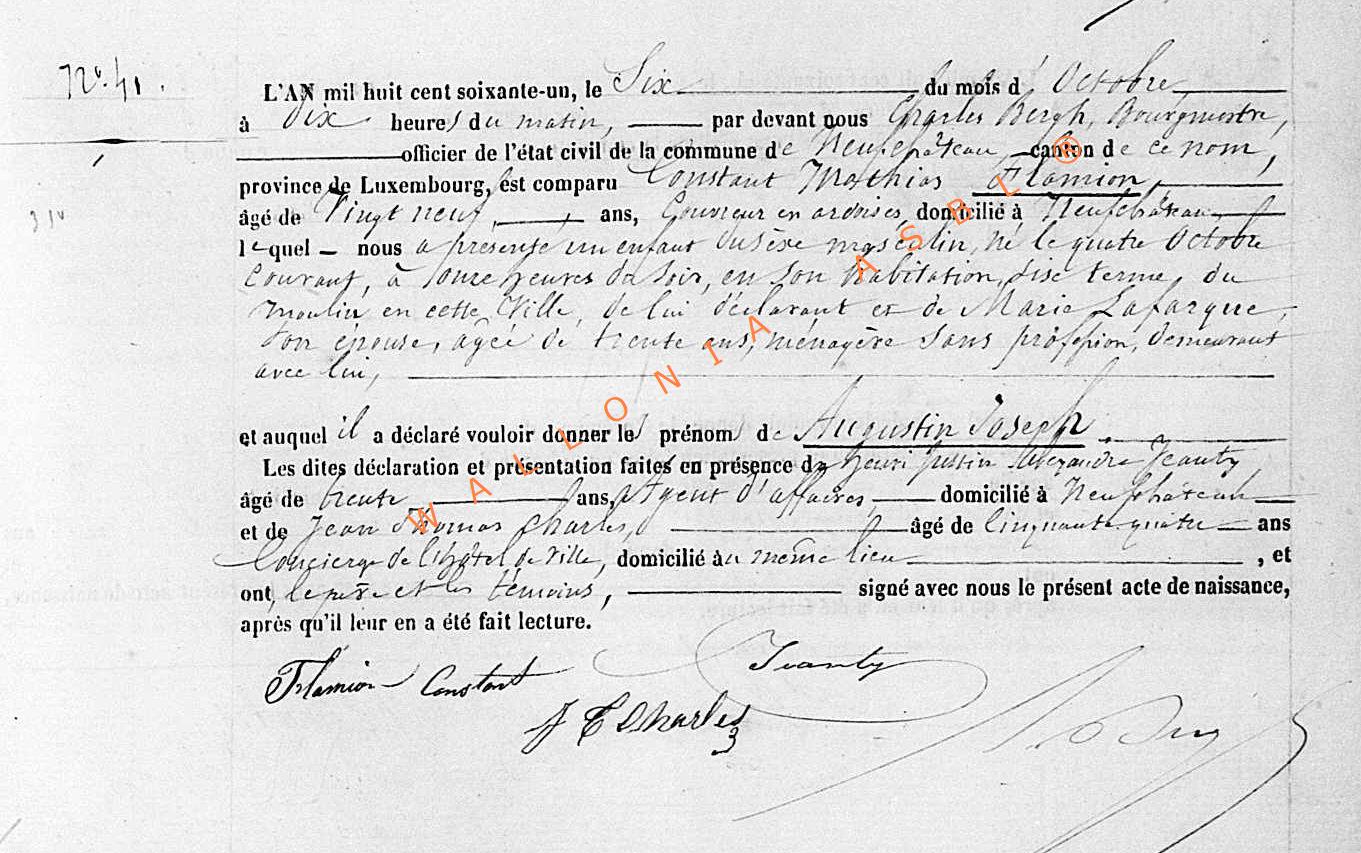 N° 41.
L'AN mil huit cent soixante-un, le Six du mois d'Octobre,
à Dix heures du matin, par devant nous Charles Bergh, Bourgmestre,
officier de l'état civil de la commune de Neufchâteau, canton de ce nom,
province de Luxembourg, est comparu Constant Mathias Flamion,
âgé de Vingt neuf, ans, Couvreur en ardoises, domicilié à Neufchâteau,
lequel nous a présenté un enfant du sèxe masculin, né le quatre Octobre
Courant, à onze heures du soir, en son habitation, sise terme, du
Moulin en cette Ville, de lui déclarant et de Marie Lafarque,
son épouse, agée de trente ans, ménagère sans profession, demeurant
avec lui,
et auquel il a déclaré vouloir donner les prénoms de Augustin Joseph
Les dites déclaration et présentation faites en présence de Henri Justin Alexandre Jeanty,
âgé de trente ans, Agent d'affaires, domicilié à Neufchâteau
et de Jean Thomas Charles, âgé de Cinquante quatre ans
Concierge de l'hôtel de Ville, domicilié au même lieu, et
ont, le père et les témoins, signé avec nous le présent acte de naissance,
après qu'il leur en a été fait lecture.
Flamion Constant
Jeanty
J T Charles
WALLONIA ASBL ®